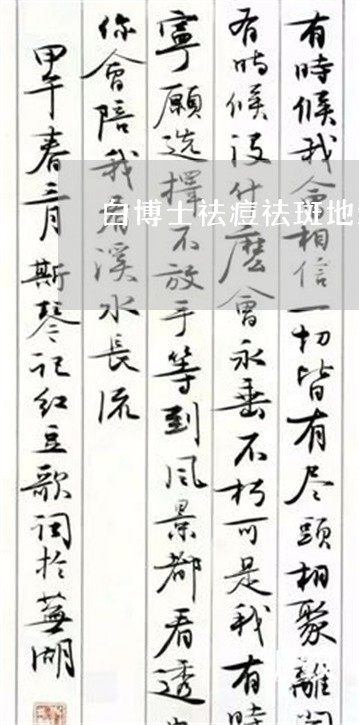 有時候我会相信一切皆有尽頭相聚離開
有時候没什麽會永垂不朽可是我有時
寧願选擇不放手等到风景都看透
你會陪我看溪水長流
甲午春三月斯琴记红豆歌词於蕪湖
白博士祛痘祛斑地